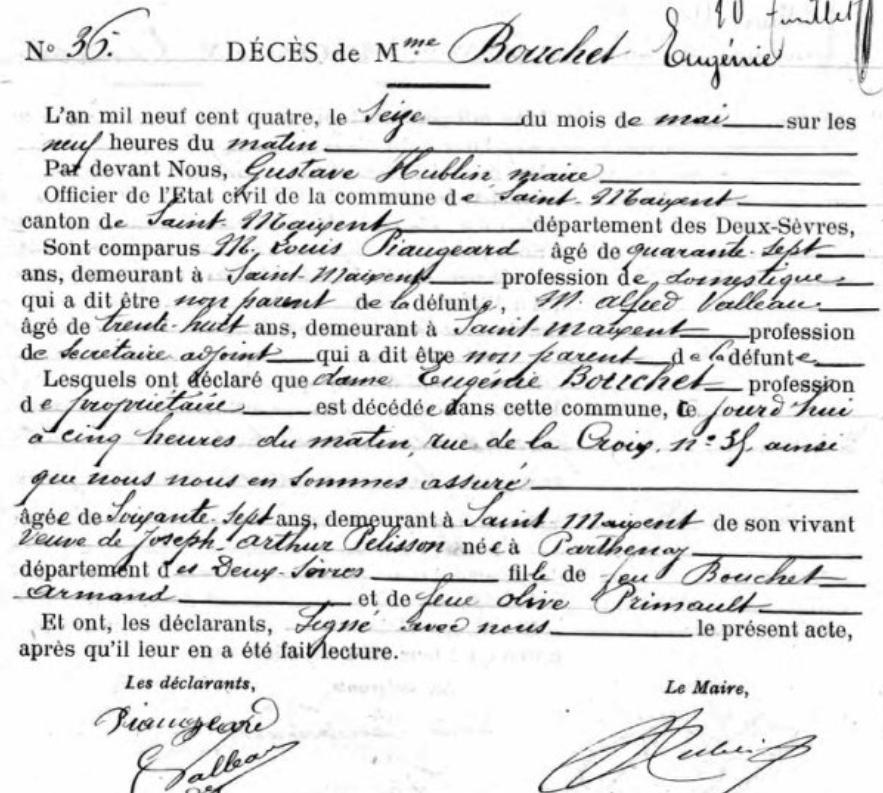 10 Juillet
N° 36. DÉCÈS de Mme Bouchet Eugénie
L'an mil neuf cent quatre, le Seize du mois de mai sur les
neuf heures du matin
Par devant Nous, Gustave Hublin maire
Officier de l'Etat civil de la commune de Saint-Maixent
canton de Saint-Maixent département des Deux-Sèvres,
Sont comparus M. Louis Piaugeard âgé de quarante-sept
ans, demeurant à Saint-Maixent profession de domestique
qui a dit être non parent de la défunte, M. Alfred Valleau
âgé de trente-huit ans, demeurant à Saint-Maixent profession
de Secrétaire adjoint qui a dit être non parent de la défunte
Lesquels ont déclaré que dame Eugénie Bouchet profession
de propriétaire est décédée dans cette commune, ce jourd'hui
à cinq heures du matin, rue de la Croix, n° 35, ainsi
que nous nous en sommes assuré
âgée de Soixante-sept ans, demeurant à Saint Maixent de son vivant
Veuve de Joseph-Arthur Pelisson née à Parthenay
département des Deux-Sèvres fille de feu Bouchet
Armand et de feue Olive Primault
Et ont, les déclarants, Signé avec nous le présent acte,
après qu'il leur en a été fait lecture.
Les déclarants, Le Maire,
Piaugeard Hublin
Valleau